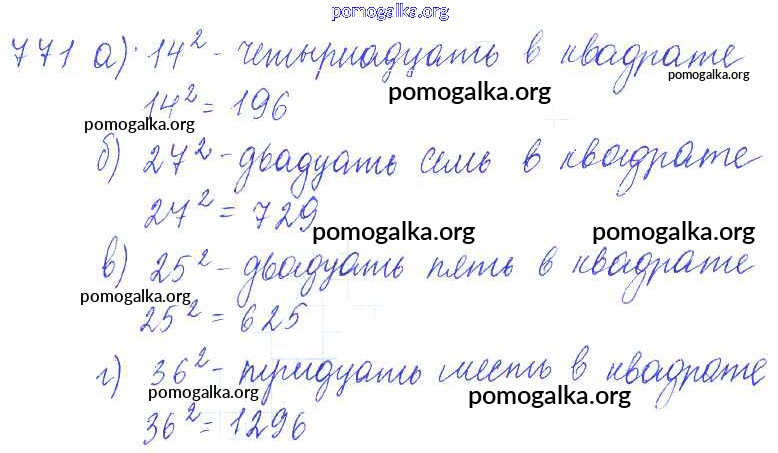 pomogalka.org
771 а) 14² - четырнадцать в квадрате
pomogalka.org
14² = 196
pomogalka.org
pomogalka.org
б) 27² - двадцать семь в квадрате
27² = 729
pomogalka.org
pomogalka.org
в) 25² - двадцать пять в квадрате
pomogalka.org
25² = 625
г) 36² - тридцать шесть в квадрате
pomogalka.org
pomogalka.org
36² = 1296